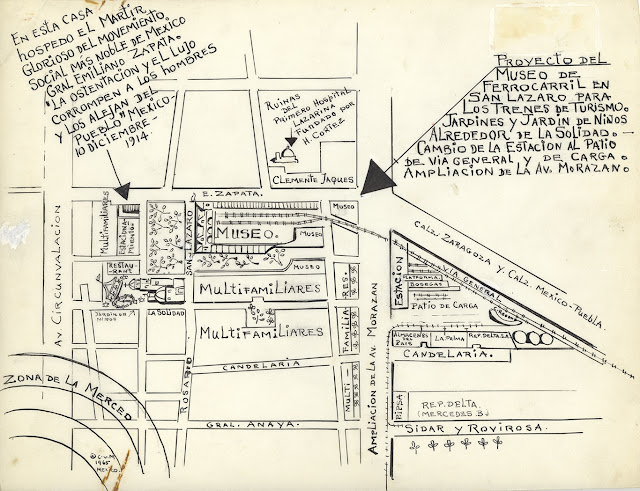 EN ESTA CASA
HOSPEDO EL MARTIR
GLORIOSO DEL MOVIMIENTO
SOCIAL MAS NOBLE DE MEXICO
GRAL EMILIANO ZAPATA.
"LA OSTENTACION Y EL LUJO
CORROMPEN A LOS HOMBRES
Y LOS ALEJAN DEL
PUEBLO" MEXICO-
10 DICIEMBRE-
1914.
PROYECTO DEL
MUSEO DE
FERROCARRIL EN
SAN LAZARO PARA
LOS TRENES DE TURISMO.
JARDINES Y JARDIN DE NIÑOS
ALREDEDOR DE LA SOLIDAD.-
CAMBIO DE LA ESTACION AL PATIO
DE VIA GENERAL Y DE CARGA.
AMPLIACION DE LA AV. MORAZAN.
RUINAS
DEL
PRIMERO HOSPITAL
LAZARINA
FUNDADO POR
H. CORTEZ
CLEMENTE JAQUES
E. ZAPATA.
AV. CIRCUNVALACION
MULTIFAMILIARES
ESTACIONA
MIENTO
SAN LAZARO
PLAZA
MUSEO.
MUSEO
MUSEO
MUSEO
RESTAU-
RANT
JARDIN DE
NIÑOS
LA SOLIDAD
MULTIFAMILIARES
MULTIFAMILIARES
RES.
FAMILIA
MULTI-
ROSARIO
CANDELARIA
GRAL. ANAYA.
AMPLIACION DE LA AV. MORAZAN
CALZ. ZARAGOZA Y CALZ. MEXICO-PUEBLA.
VIA GENERAL
ESTACION
PLATAFORMA
BODEGAS
PATIO DE CARGA
ALMACENES
DEL
PAIS
LA PALMA
REP. DELTA SA
CANDELARIA.
PIPSA
REP. DELTA
(MERCEDES B.)
SIDAR Y ROVIROSA.
ZONA DE LA MERCED
1965
MEXICO.